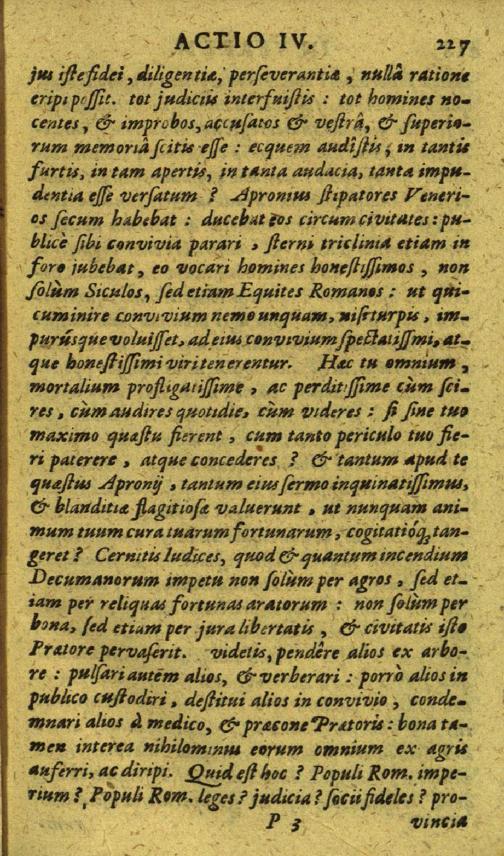 ACTIO IV. 227
jus iste fidei, diligentiæ, perseverantiæ, nullâ ratione
eripi possit. tot judiciis interfuistis : tot homines no-
centes, & improbos, accusatos & vestrâ, & superio-
rum memoriâ scitis esse : ecquem audîstis, in tantis
furtis, in tam apertis, in tanta audacia, tanta impu-
dentia esse versatum ? Apronius stipatores Veneri-
os secum habebat : ducebat eos circum civitates : pu-
blicè sibi convivia parari, sterni triclinia etiam in
foro jubebat, eo vocari homines honestissimos, non
solùm Siculos, sed etiam Equites Romanos : ut qui-
cum inire convivium nemo unquam, nisi turpis, im-
purúsque voluisset, ad eius convivium spectatissimi, at-
que honestissimi viri tenerentur. Hæc tu omnium,
mortalium profligatissime, ac perditissime cùm sci-
res, cùm audires quotidie, cùm videres : si sine tuo
maximo quæstu fierent, cum tanto periculo tuo fie-
ri paterere, atque concederes ? & tantum apud te
quæstus Apronij, tantum eius sermo inquinatissimus,
& blanditiæ flagitiosæ valuerunt, ut nunquam ani-
mum tuum cura tuarum fortunarum, cogitatióq; tan-
geret ? Cernitis Iudices, quod & quantum incendium
Decumanorum impetu non solùm per agros, sed et-
iam per reliquas fortunas aratorum : non solùm per
bona, sed etiam per jura libertatis, & civitatis isto
Prætore pervaserit. videtis, pendêre alios ex arbo-
re : pulsari autem alios, & verberari : porrò alios in
publico custodiri, destitui alios in convivio, conde-
mnari alios à medico, & præcone Prætoris : bona ta-
men interea nihilominus eorum omnium ex agris
auferri, ac diripi. Quid est hoc ? Populi Rom. impe-
rium ? Populi Rom. leges ? judicia ? socii fideles ? pro-
P 3 vincia